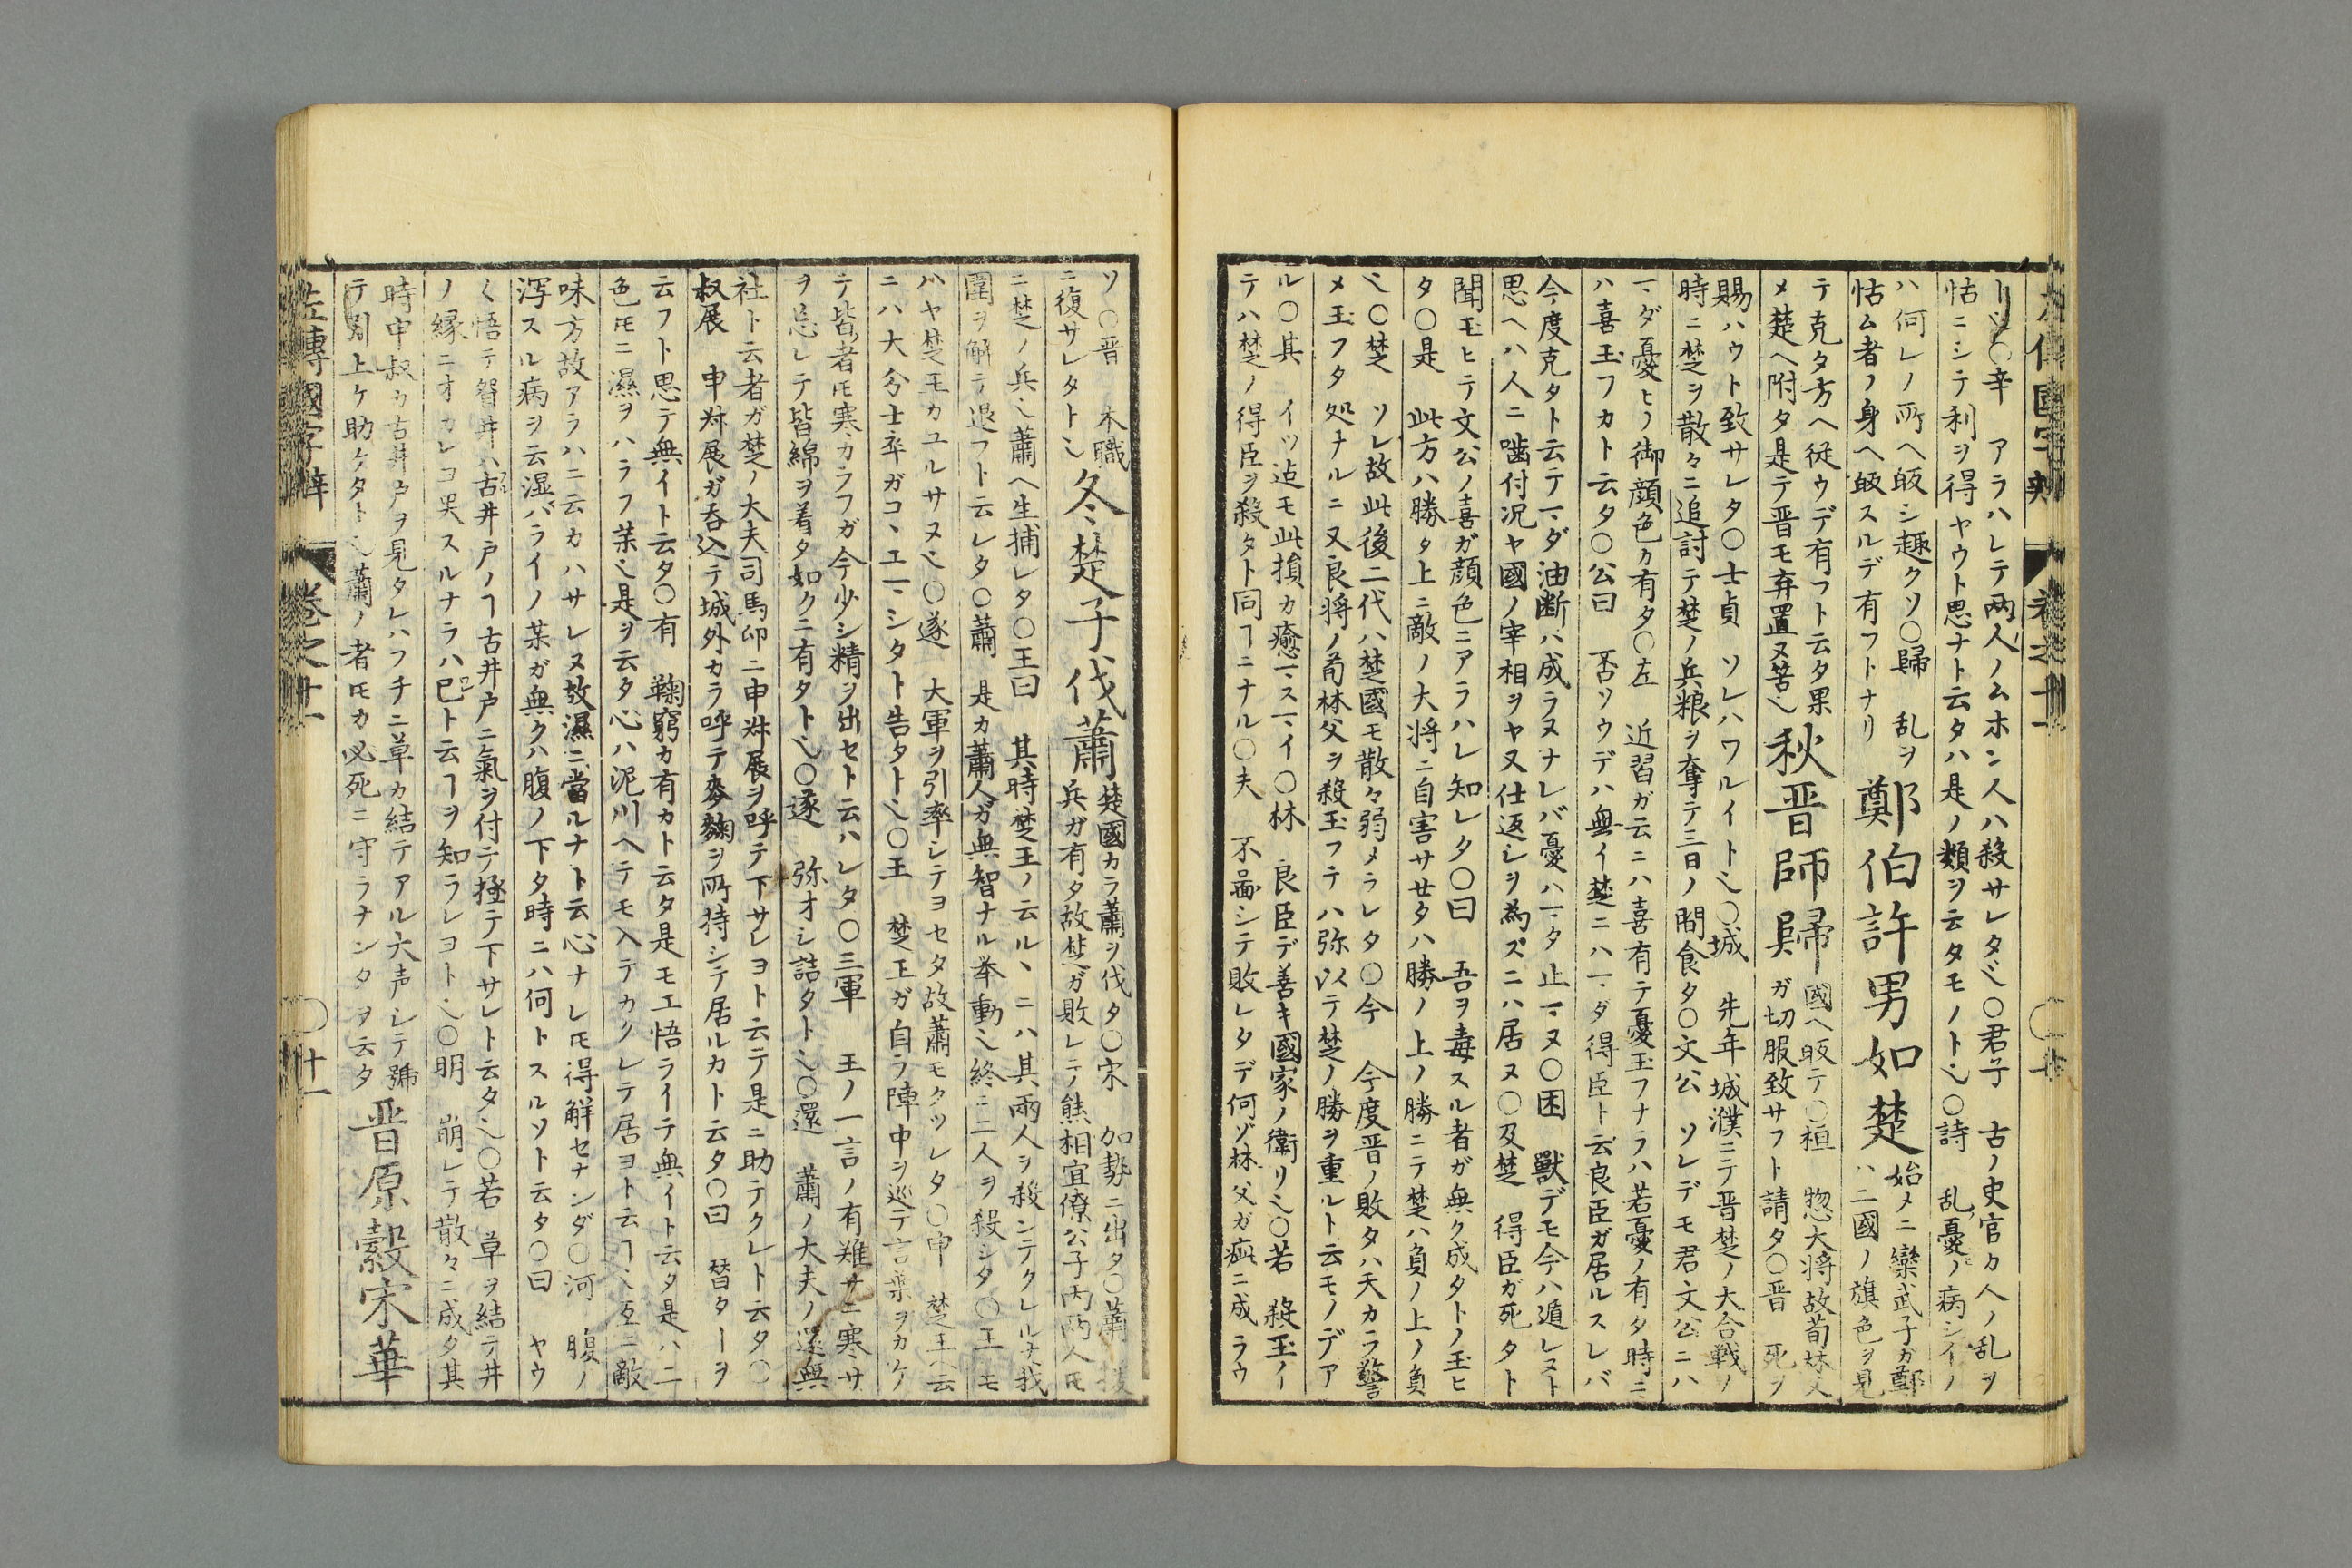 左傳國字辨 卷之十一 〇廿
トソ〇辛 アラハレテ両人ノムホン人ハ殺サレタ〻〇君子 古ノ史官カ人ノ乱ヲ
怙ニシテ利ヲ得ヤウト思ナト云タハ是ノ類ヲ云タモノト〻〇詩 乱憂ノ病シイノ
ハ何レノ所ヘ皈シ趣クソ〇歸 乱ヲ
怙ム者ノ身ヘ皈スルデ有フトナリ
鄭伯許男如楚
始メニ欒武子ガ鄭
ハ二國ノ旗色ヲ見
テ克タ方ヘ従ウデ有フト云タ果
メ楚ヘ附タ是テ晋モ弃置ヌ筈〻
秋晋師歸
國ヘ皈テ〇桓 惣大将故荀林父
ガ切服致サフト請タ〇晋 死ヲ
賜ハウト致サレタ〇士貞 ソレハワルイト〻〇城 先年城濮ニテ晋楚ノ大合戦ノ
時ニ楚ヲ散々ニ追討テ楚ノ兵粮ヲ奪テ三日ノ間食タ〇文公 ソレデモ君文公ニハ
マダ憂ヒノ御顔色カ有タ〇左 近習ガ云ニハ喜有テ憂玉フナラハ若憂ノ有タ時ニ
ハ喜玉フカト云タ〇公曰 否ソウデハ無イ楚ニハマダ得臣ト云良臣ガ居ルスレバ
今度克タト云テマダ油断バ成ラヌナレバ憂ハマタ止マヌ〇困 獸デモ今ハ遁レヌト
思ヘハ人ニ噛付况ヤ國ノ宰相ヲヤ又仕返シヲ為ズニハ居ヌ〇及楚 得臣ガ死タト
聞玉ヒテ文公ノ喜ガ顔色ニアラハレ知レタ〇曰 吾ヲ毒スル者ガ無ク成タトノ玉ヒ
タ〇是 此方ハ勝タ上ニ敵ノ大将ニ自害サセタハ勝ノ上ノ勝ニテ楚ハ負ノ上ノ負
〻〇楚 ソレ故此後二代ハ楚國モ散々弱メラレタ〇今 今度晋ノ敗タハ天カラ警
メ玉フタ処ナルニ又良将ノ荀林父ヲ殺玉フテハ弥以テ楚ノ勝ヲ重ルト云モノデア
ル〇其 イツ迠モ此損カ癒マスマイ〇林 良臣デ善キ國家ノ衛リ〻〇若 殺玉ノー
テハ楚ノ得臣ヲ殺タト同ヿニナル〇夫 不啚シテ敗レタデ何ゾ林父ガ疵ニ成ラウ
ソ〇晋 本職
ニ復サレタト〻
冬楚子伐蕭
楚國カラ蕭ヲ伐タ〇宋 加勢ニ出タ〇蕭
兵ガ有タ故楚ガ敗レテ熊相宜僚公子丙両人𪜈
ニ楚ノ兵〻蕭ヘ生捕レタ〇王曰 其時楚王ノ云ルヽニハ其両人ヲ殺ンテクレルナ我
圍ヲ解テ退フト云レタ〇蕭 是カ蕭人ガ無智ナル举動〻終ニ二人ヲ殺シタ〇王 モ
ハヤ楚王カユルサヌ〻〇遂 大軍ヲ引率シテヨセタ故蕭モクツレタ〇申 楚王ヘ云
ニハ大分士卒ガコヾエマシタト告タト〻〇王 楚王ガ自ラ陣中ヲ巡テ言葉ヲカケ
テ皆ノ者𪜈寒カラフガ今少シ精ヲ出セト云ハレタ〇三軍 王ノ一言ノ有難サニ寒サ
ヲ忘レテ皆綿ヲ着タ如クニ有タト〻〇遂 弥オシ詰タト〻〇還 蕭ノ大夫ノ還無
社ト云者ガ楚ノ大夫司馬卯ニ申叔展ヲ呼テ下サレヨト云テ是ニ助テクレト云タ〇
叔展 申叔展ガ呑込テ城外カラ呼テ麥麹ヲ所持シテ居ルカト云タ〇曰 替ターヲ
云フト思テ無イト云タ〇有 鞠窮カ有カト云タ是モエ悟ライテ無イト云タ是ハ二
色𪜈ニ濕ヲハラフ茱〻是ヲ云タ心ハ泥川ヘテモ入テカクレテ居ヨト云ヿ〻互ニ敵
味方故アラハニ云カハサレヌ故濕ニ當ルナト云心ナレ𪜈得觧セナンダ〇河 腹ノ
瀉スル病ヲ云湿バライノ茱ガ無クハ腹ノ下タ時ニハ何トスルソト云タ〇曰 ヤウ
〱悟テ眢井ハ古井戸ノヿ古井戸ニ氣ヲ付テ拯テ下サレト云タ〻〇若 草ヲ結テ井
ノ縁ニオカレヨ哭スルナラハ已ト云ヿヲ知ラレヨト〻〇明 崩レテ散々ニ成タ其
時申叔カ古井戸ヲ見タレハフチニ草カ結テアル大声シテ號
テ引上ケ助ケタト〻蕭ノ者𪜈カ必死ニ守ラナンタヲ云タ
晋原縠宋華
左傳國字辨 卷之十一 〇廿一